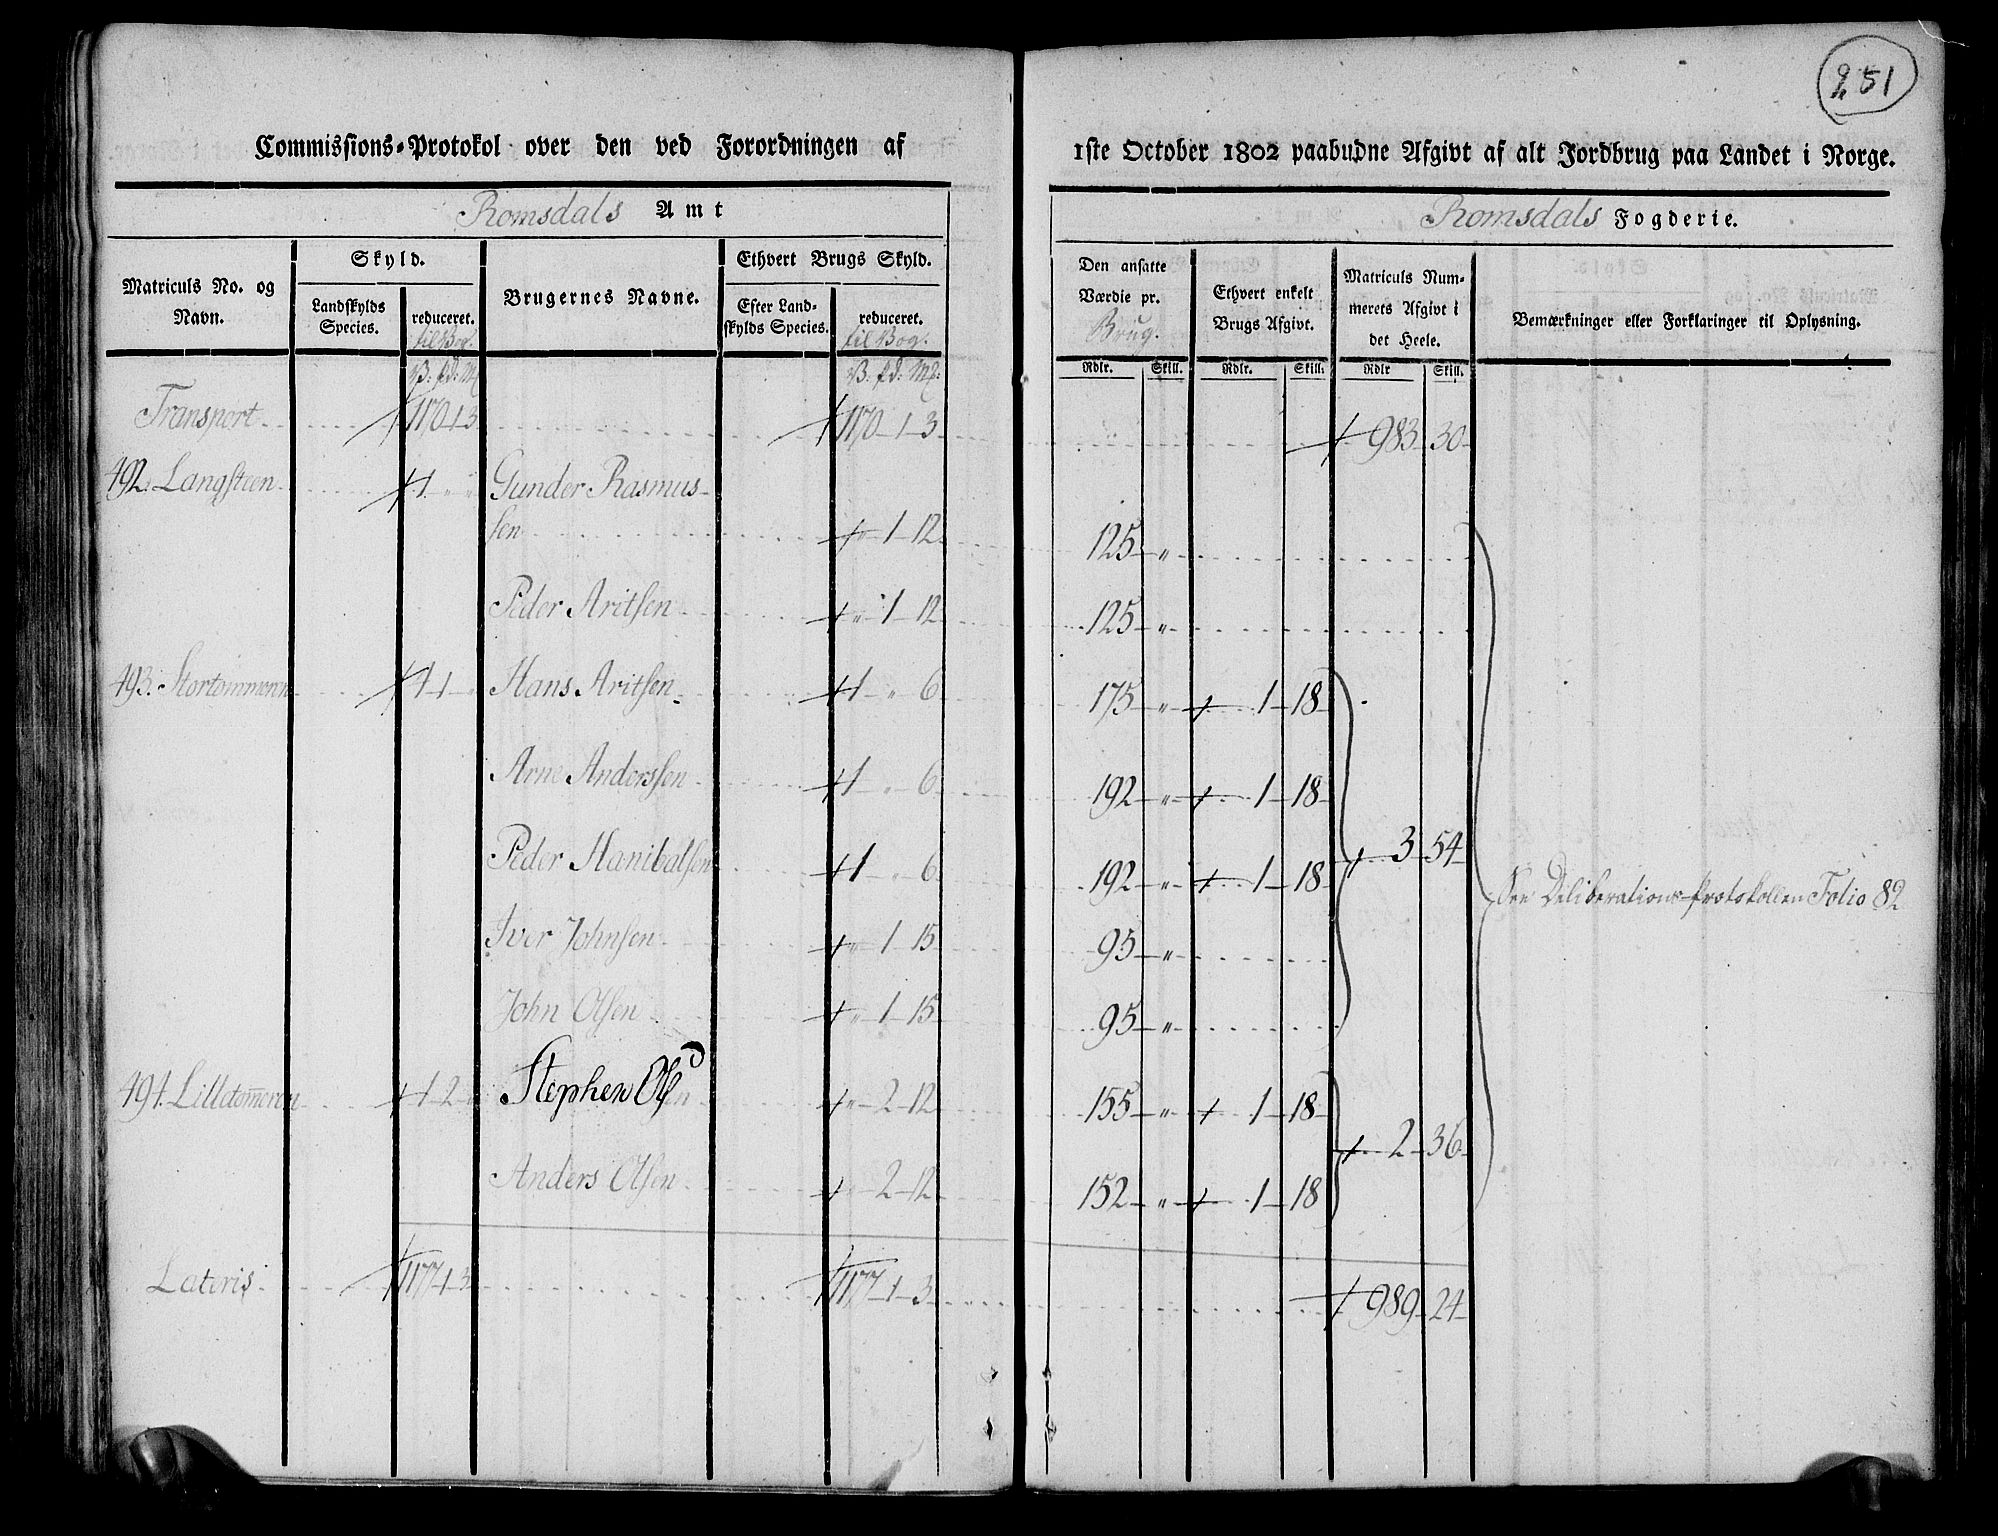 251
Commissions-Protokol over den ved Forordningen af 1ste October 1802 paabudne Afgivt af alt Jordbrug paa Landet i Norge.
Romsdals Amt
Romsdals Fogderie.
Matriculs No. og Navn.
Skyld.
Landskylds Species.
reduceret. til Vog.
Brugernes Navne.
Ethvert Brugs Skyld.
Efter Landskylds Species.
reduceret. til Vog.
Den ansatte Værdie pr. Brug.
Ethvert enkelt Brugs Afgivt.
Matriculs Nummerets Afgivt i det Heele.
Bemærkninger eller Forklaringer til Oplysning.
V: pd: Mk V: pd: Mk: Rdlr. Skill. Rdlr. Skill: Rdlr Skill.
Transport 1170 1 3 1170 1 3 983 30
492. Langsteen 1 " " Gunder Rasmus-
sen " 1 12 125 "
Peder Aritsen " 1 12 125 "
493. Stortommenn 4 1 " Hans Aritsen 1 " 6 175 " 1 18
Arne Anderssen 1 " 6 192 " 1 18
Peder Hanibalsen 1 " 6 192 " 1 18 3 54
See Deliberations-Protokollen Folio 82
Iver Johnsen " 1 15 95 "
John Olsen " 1 15 95 "
494. Lilletom̄eren 1 2 " Stephen Olsen " 2 12 155 " 1 18
2 36
Anders Olsen " 2 12 152 " 1 18
Lateris 1177 1 3 1177 1 3 989 24